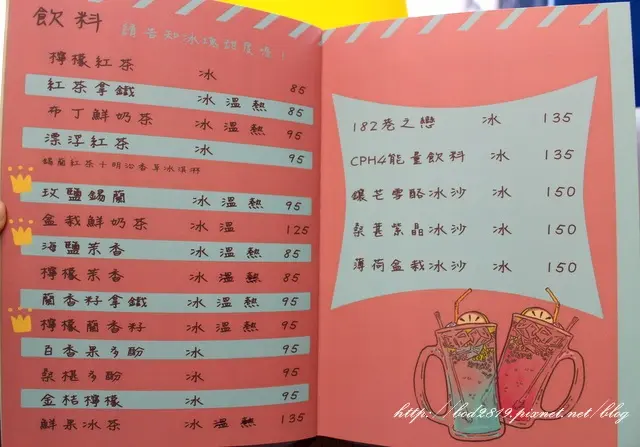 飲料
請告知冰塊甜度唷!
檸檬紅茶 冰 85
紅茶拿鐵 冰 溫 熱 85
布丁鮮奶茶 冰 溫 熱 95
漂浮紅茶 冰 95
錫蘭紅茶+明治香草冰淇淋
玫鹽錫蘭 冰 溫 熱 95
盆栽鮮奶茶 冰 溫 125
海鹽茉香 冰 溫 熱 85
檸檬茉香 冰 溫 熱 85
蘭香籽拿鐵 冰 溫 熱 95
檸檬蘭香籽 冰 溫 熱 95
百香果多酚 冰 95
桑椹多酚 冰 95
金桔檸檬 冰 95
鮮果冰茶 冰 溫 熱 135
182巷之戀 冰 135
CPH4能量飲料 冰 135
鑲芒雪酪冰沙 冰 150
桑甚紫晶冰沙 冰 150
薄荷盆栽冰沙 冰 150
http://bcd2819.pixnet.net/blog